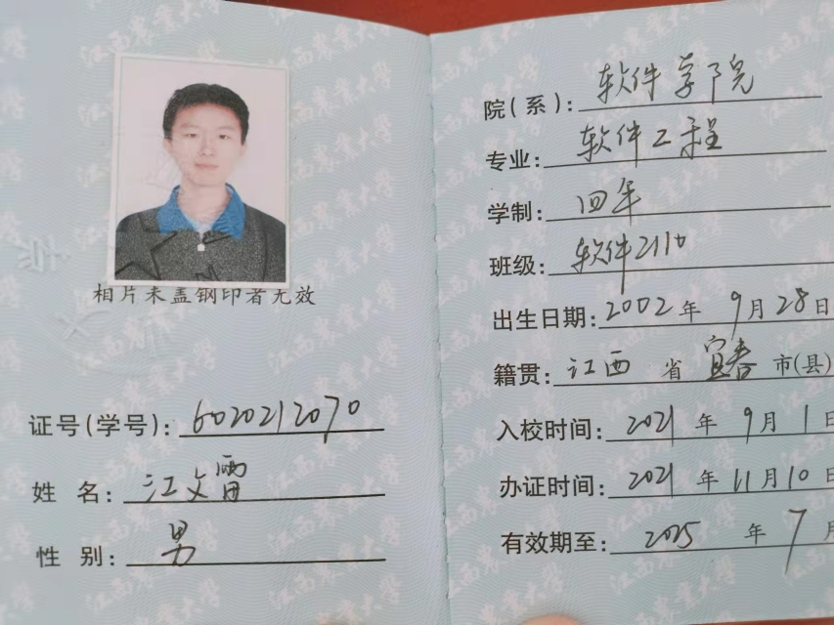 相片未盖钢印者无效
证号(学号): 6020212070
姓 名: 江文雷
性 别: 男
院(系): 软件学院
专业: 软件工程
学制: 四年
班级: 软件2110
出生日期: 2002 年 9 月 28 日
籍贯: 江西 省 宜春 市(县)
入校时间: 2021 年 9 月 1 日
办证时间: 2021 年 11 月 10 日
有效期至: 2025 年 7 月